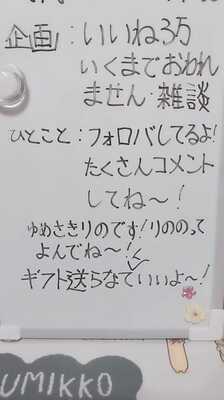 企画:いいね3万
いくまでおわれ
ません・雑談
ひとこと:フォロバしてるよ!
たくさんコメント
してね〜!
ゆめさきりのです!りののって
よんでね〜!
ギフト送らなていいよ〜!
UMIKKO